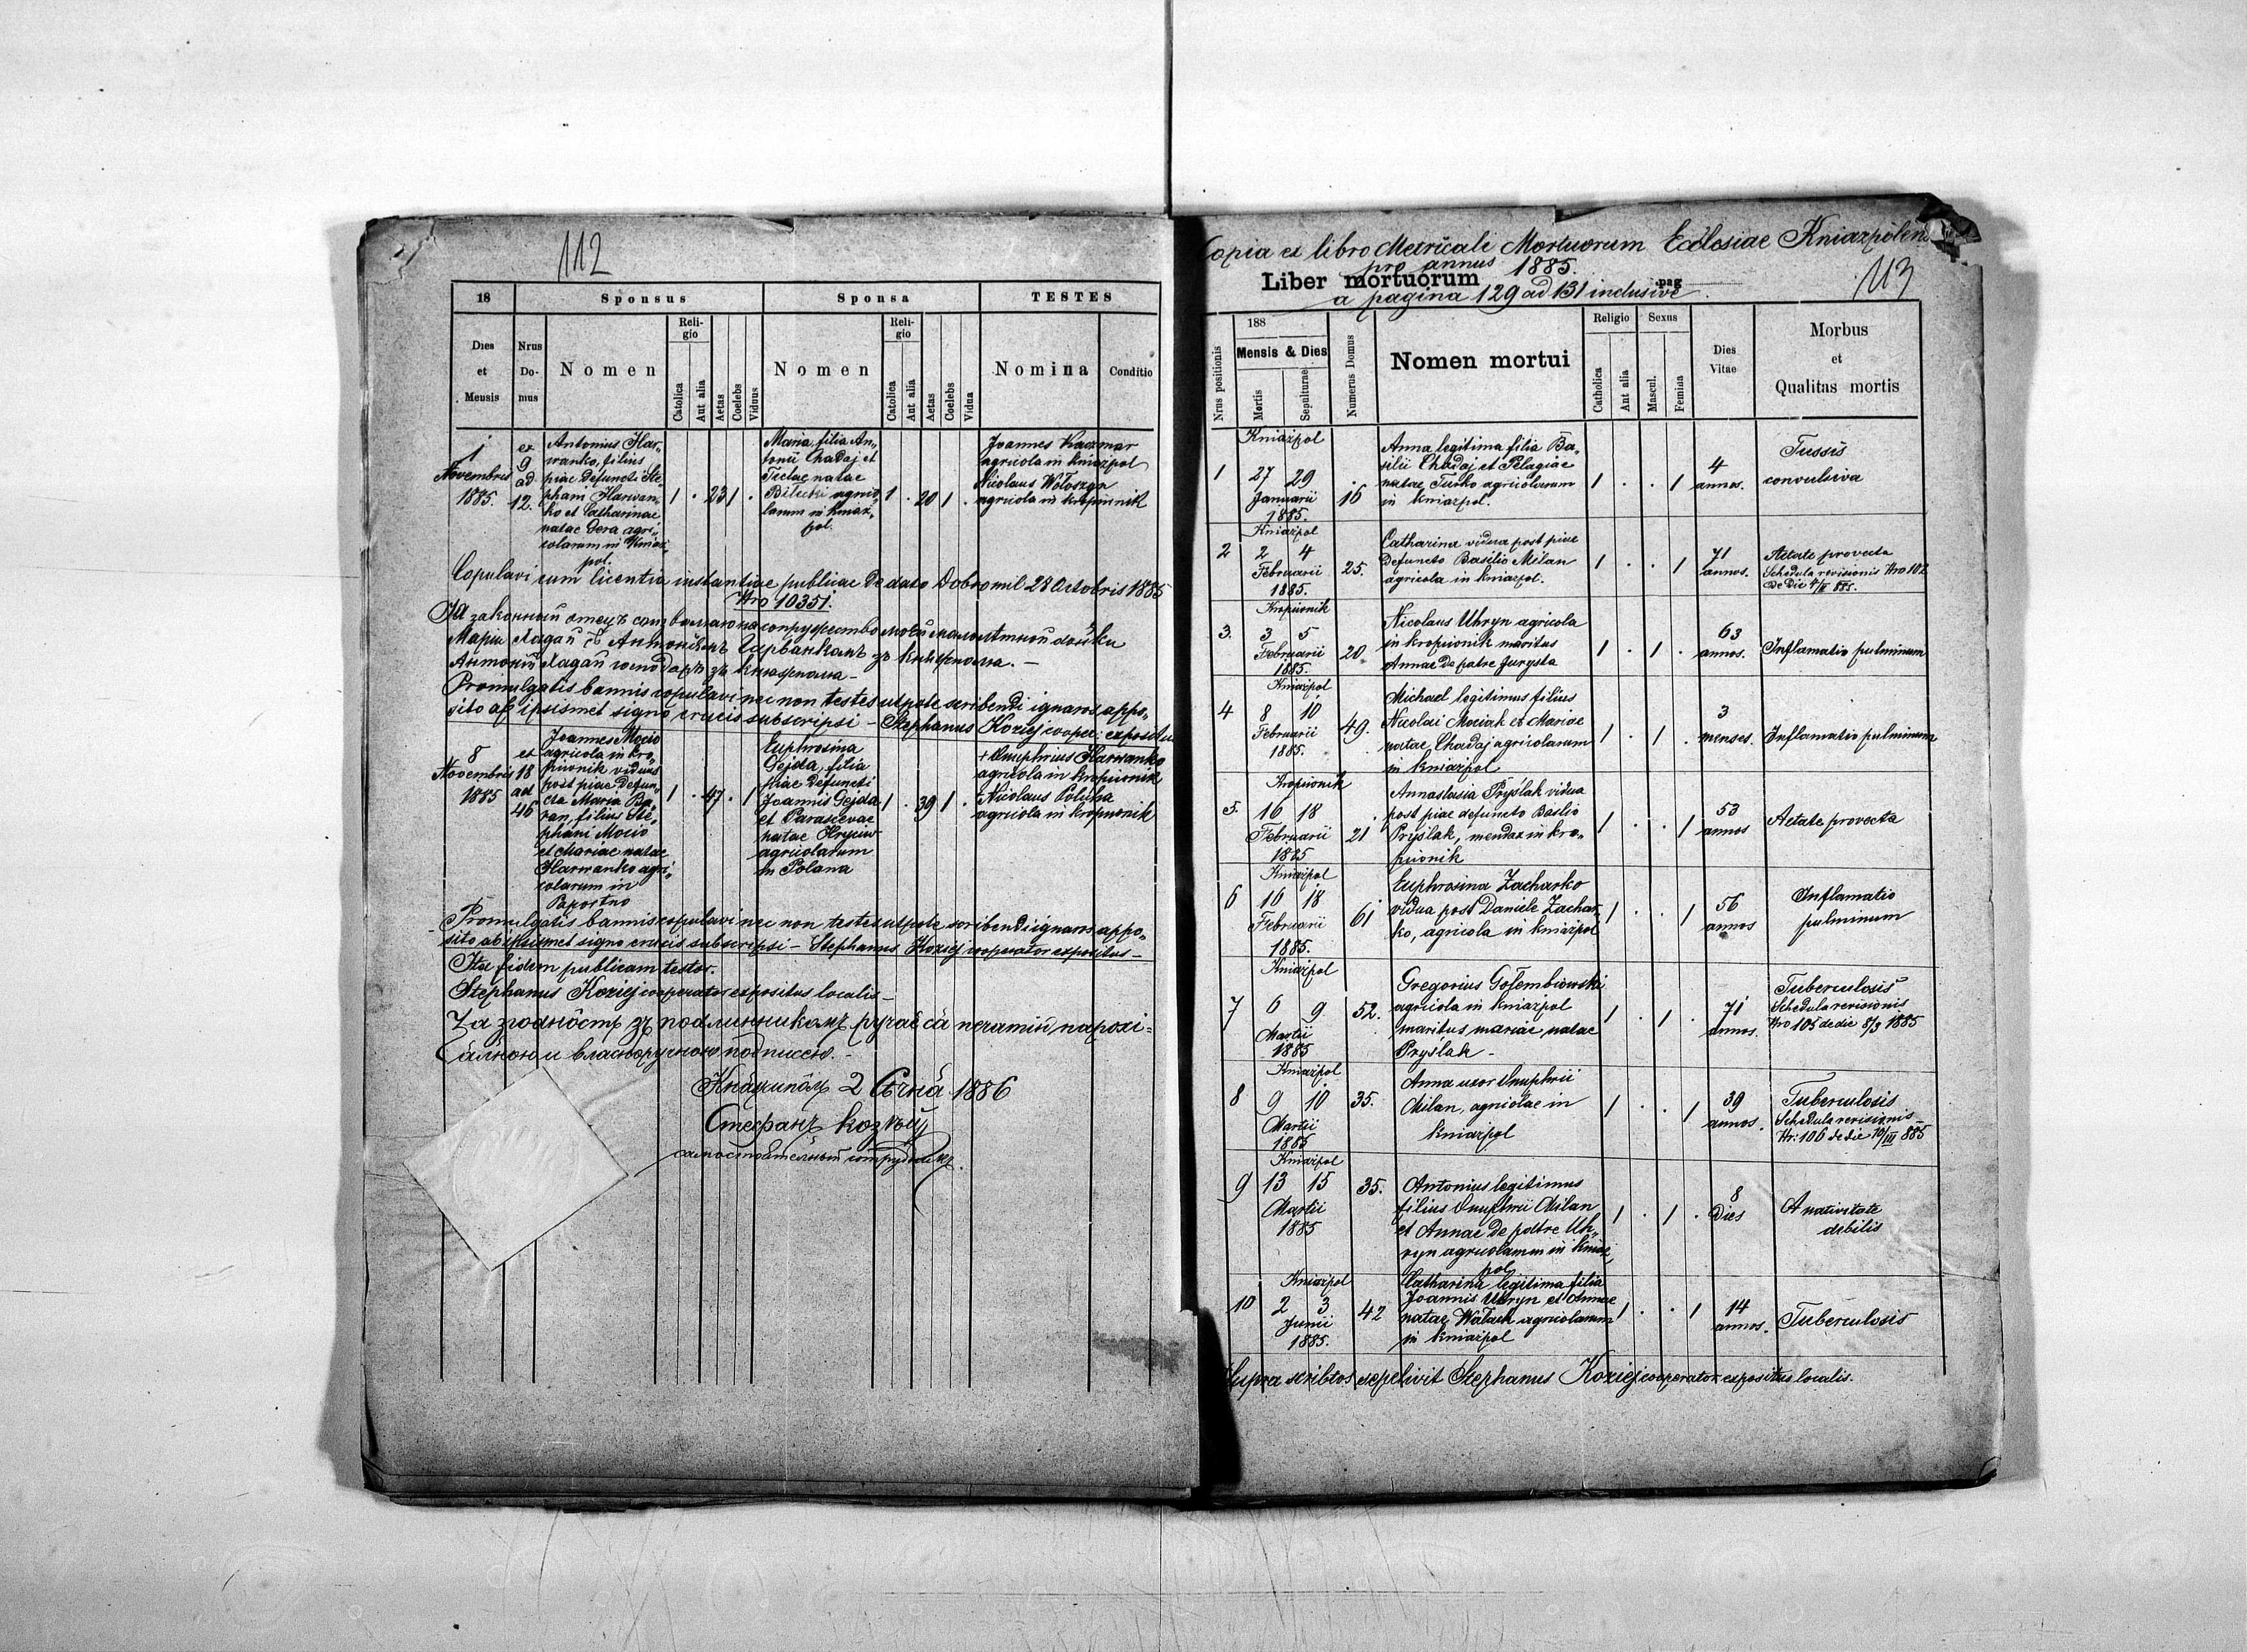 112
18
Sponsus
Sponsa
TESTES
Dies et Mensis
Nrus Domus
Nomen
Religio
Catholica
Aut alia
Aetas
Coelebs
Viduus
Nomen
Religio
Catholica
Aut alia
Aetas
Coelebs
Vidua
Nomina
Conditio
1
Novembris
1885.
ex
9
ad
12.
Antonius Har„
wanko, filius
piae defuncti Ste„
phani Harwan„
ko et Catharinae
natae Dera agri„
colarum in Kniaź„
pol.
1 . 23 1 .
Maria, filia An„
tonii Chadaj et
Teclae natae
agrico„
larum in Kniaź„
pol.
1 . 20 1 .
Joannes Kaczmar
agricola in Kniazpol
Nicolaus Wołoszyn
agricola in Kropiwnik
Copulavi cum licentia instantiae publicae de dato Dobromil 23 Octobris 1885
Nro 10351.
Promulgatis bannis copulavi nec non testes utpote scribendi ignaros appo„
sito ab ipsismet signo crucis subscripsi – Stephanus Koziej cooper: expositus
8
Novembris
1885
ex
18
ad
46
Joannes Mocio
agricola in Kro„
piwnik viduus
post piae defun„
cta Maria Ba„
ran, filius Ste„
phani Mocio
et Mariae natae
Harwanko agri„
colarum in
Paportno
1 . 47 . 1
Euphrosina
Gejda, filia
piae defuncti
Joannis Gejda
et Parascevae
natae Hryciw
agricolarum
in Polana
1 . 39 1 .
+ Onuphrius Harwanko
agricola in Kropiwnik
+ Nicolaus Policha
agricola in Kropiwnik
Promulgatis bannis copulavi nec non testes utpote scribendi ignaros appo„
sito ab ipsismet signo crucis subscripsi – Stephanus Koziej cooperator expositus –
Ita fidem publicam testor.
Stephanus Koziej cooperator expositus localis –
2 Сѣчня 1886
Стефанъ Козѣй
Copia ex libro Metricali Mortuorum Ecclesiae
pro annus 1885.
Liber mortuorum pag
a pagina 129 ad 131 inclusive.
113
Nrus positionis
188
Mensis & Dies
Mortis
Sepulturae
Numerus Domus
Nomen mortui
Religio
Catholica
Aut alia
Sexus
Mascul.
Femina
Dies Vitae
Morbus
et
Qualitas mortis
Kniaźpol
1 27 29
Januarii
1885.
16
Anna legitima filia Ba„
silii Chadaj et Pelagiae
natae Turko agricolarum
in Kniaźpol.
1 . . 1
4
annos.
Tussis
convulsiva
Kniaźpol
2 2 4
Februarii
1885.
25.
Catharina vidua post piae
defuncto Basilio Milan
agricola in Kniaźpol.
1 . . 1
71
annos.
Aetate provecta
Schedula revisionis Nro 102
de die 4/II 885.
Kropiwnik
3. 3 5
Februarii
1885.
20
Nicolaus Uhryn agricola
in Kropiwnik maritus
Annae de patre Jurysta
1 . 1 .
63
annos.
Inflamatio pulminum
Kniaźpol
4 8 10
Februarii
1885.
49.
Michael legitimus filius
Nicolai Mociak et Mariae
natae Chadaj agricolarum
in Kniaźpol
1 . 1 .
3
menses.
Inflamatio pulminum
Kropiwnik
5. 16 18
Februarii
1885
21
Annastasia Pryślak vidua
post piae defuncto Basilio
Pryślak, mendax in Kro„
piwnik
1 . . 1
53
annos
Aetate provecta
Kniaźpol
6 16 18
Februarii
1885.
61
Euphrosina Zacharko
vidua post Daniele Zachar„
ko, agricola in Kniaźpol
1 . . 1
56
annos
Inflamatio
pulminum
Kniaźpol
7 6 9
Martii
1885
52.
Gregorius Gołembiowski
agricola in Kniaźpol
maritus mariae natae
Pryślak –
1 . 1 .
71
annos.
Tuberculosis
Schedula revisionis
Nro 105 de die 8/3 1885
Kniaźpol
8 9 10
Martii
1885
35.
Anna uxor Onuphrii
Milan, agricolae in
Kniaźpol
1 . . 1
39
annos.
Tuberculosis
Schedula revisionis
Nr: 106 de die 10/III 885
Kniaźpol
9 13 15
Martii
1885
35.
Antonius legitimus
filius Onuphrii Milan
et Annae de patre Uh„
ryn agricolarum in Kniaź„
pol
1 . 1 .
8
dies
A nativitate
debilis
Kniaźpol
10 2 3
Junii
1885.
42
Catharina legitima filia
Joannis Uhryn et Annae
natae Wałach agricolarum
in Kniaźpol
1 . . 1
14
annos.
Tuberculosis
Supra scribtos sepelivit Stephanus Koziej cooperator expositus localis.